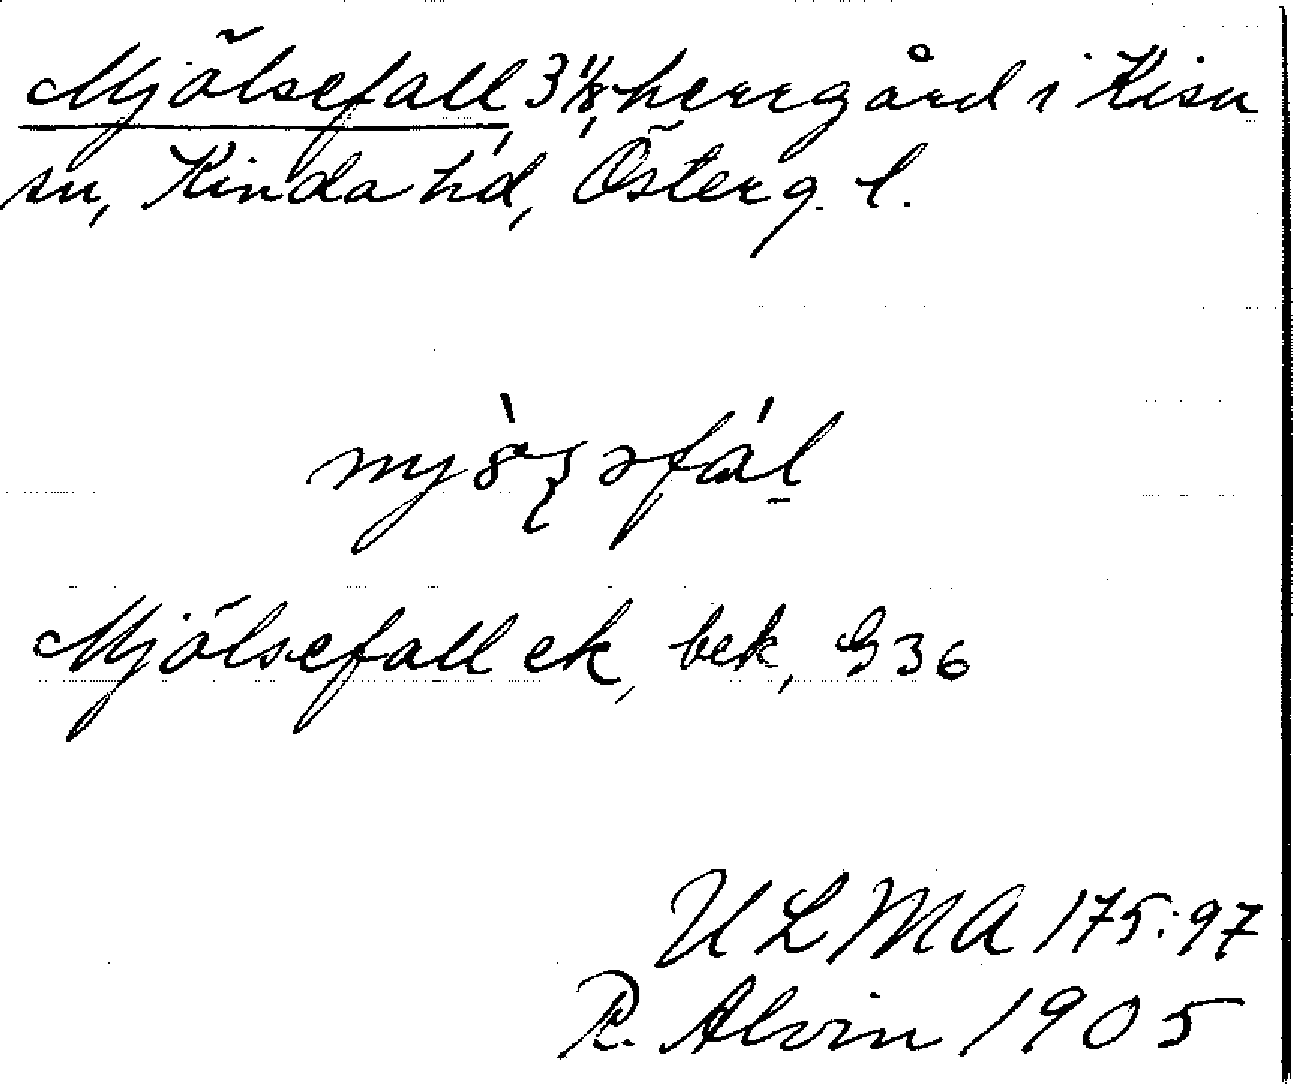 Mjölsefall, 3 1/8, herrgård i Kisa
sn, Kinda hd, Österg. l.
Mjölsefall ek, bek, G 36
ULMA 175:97
R. Alvin 1905